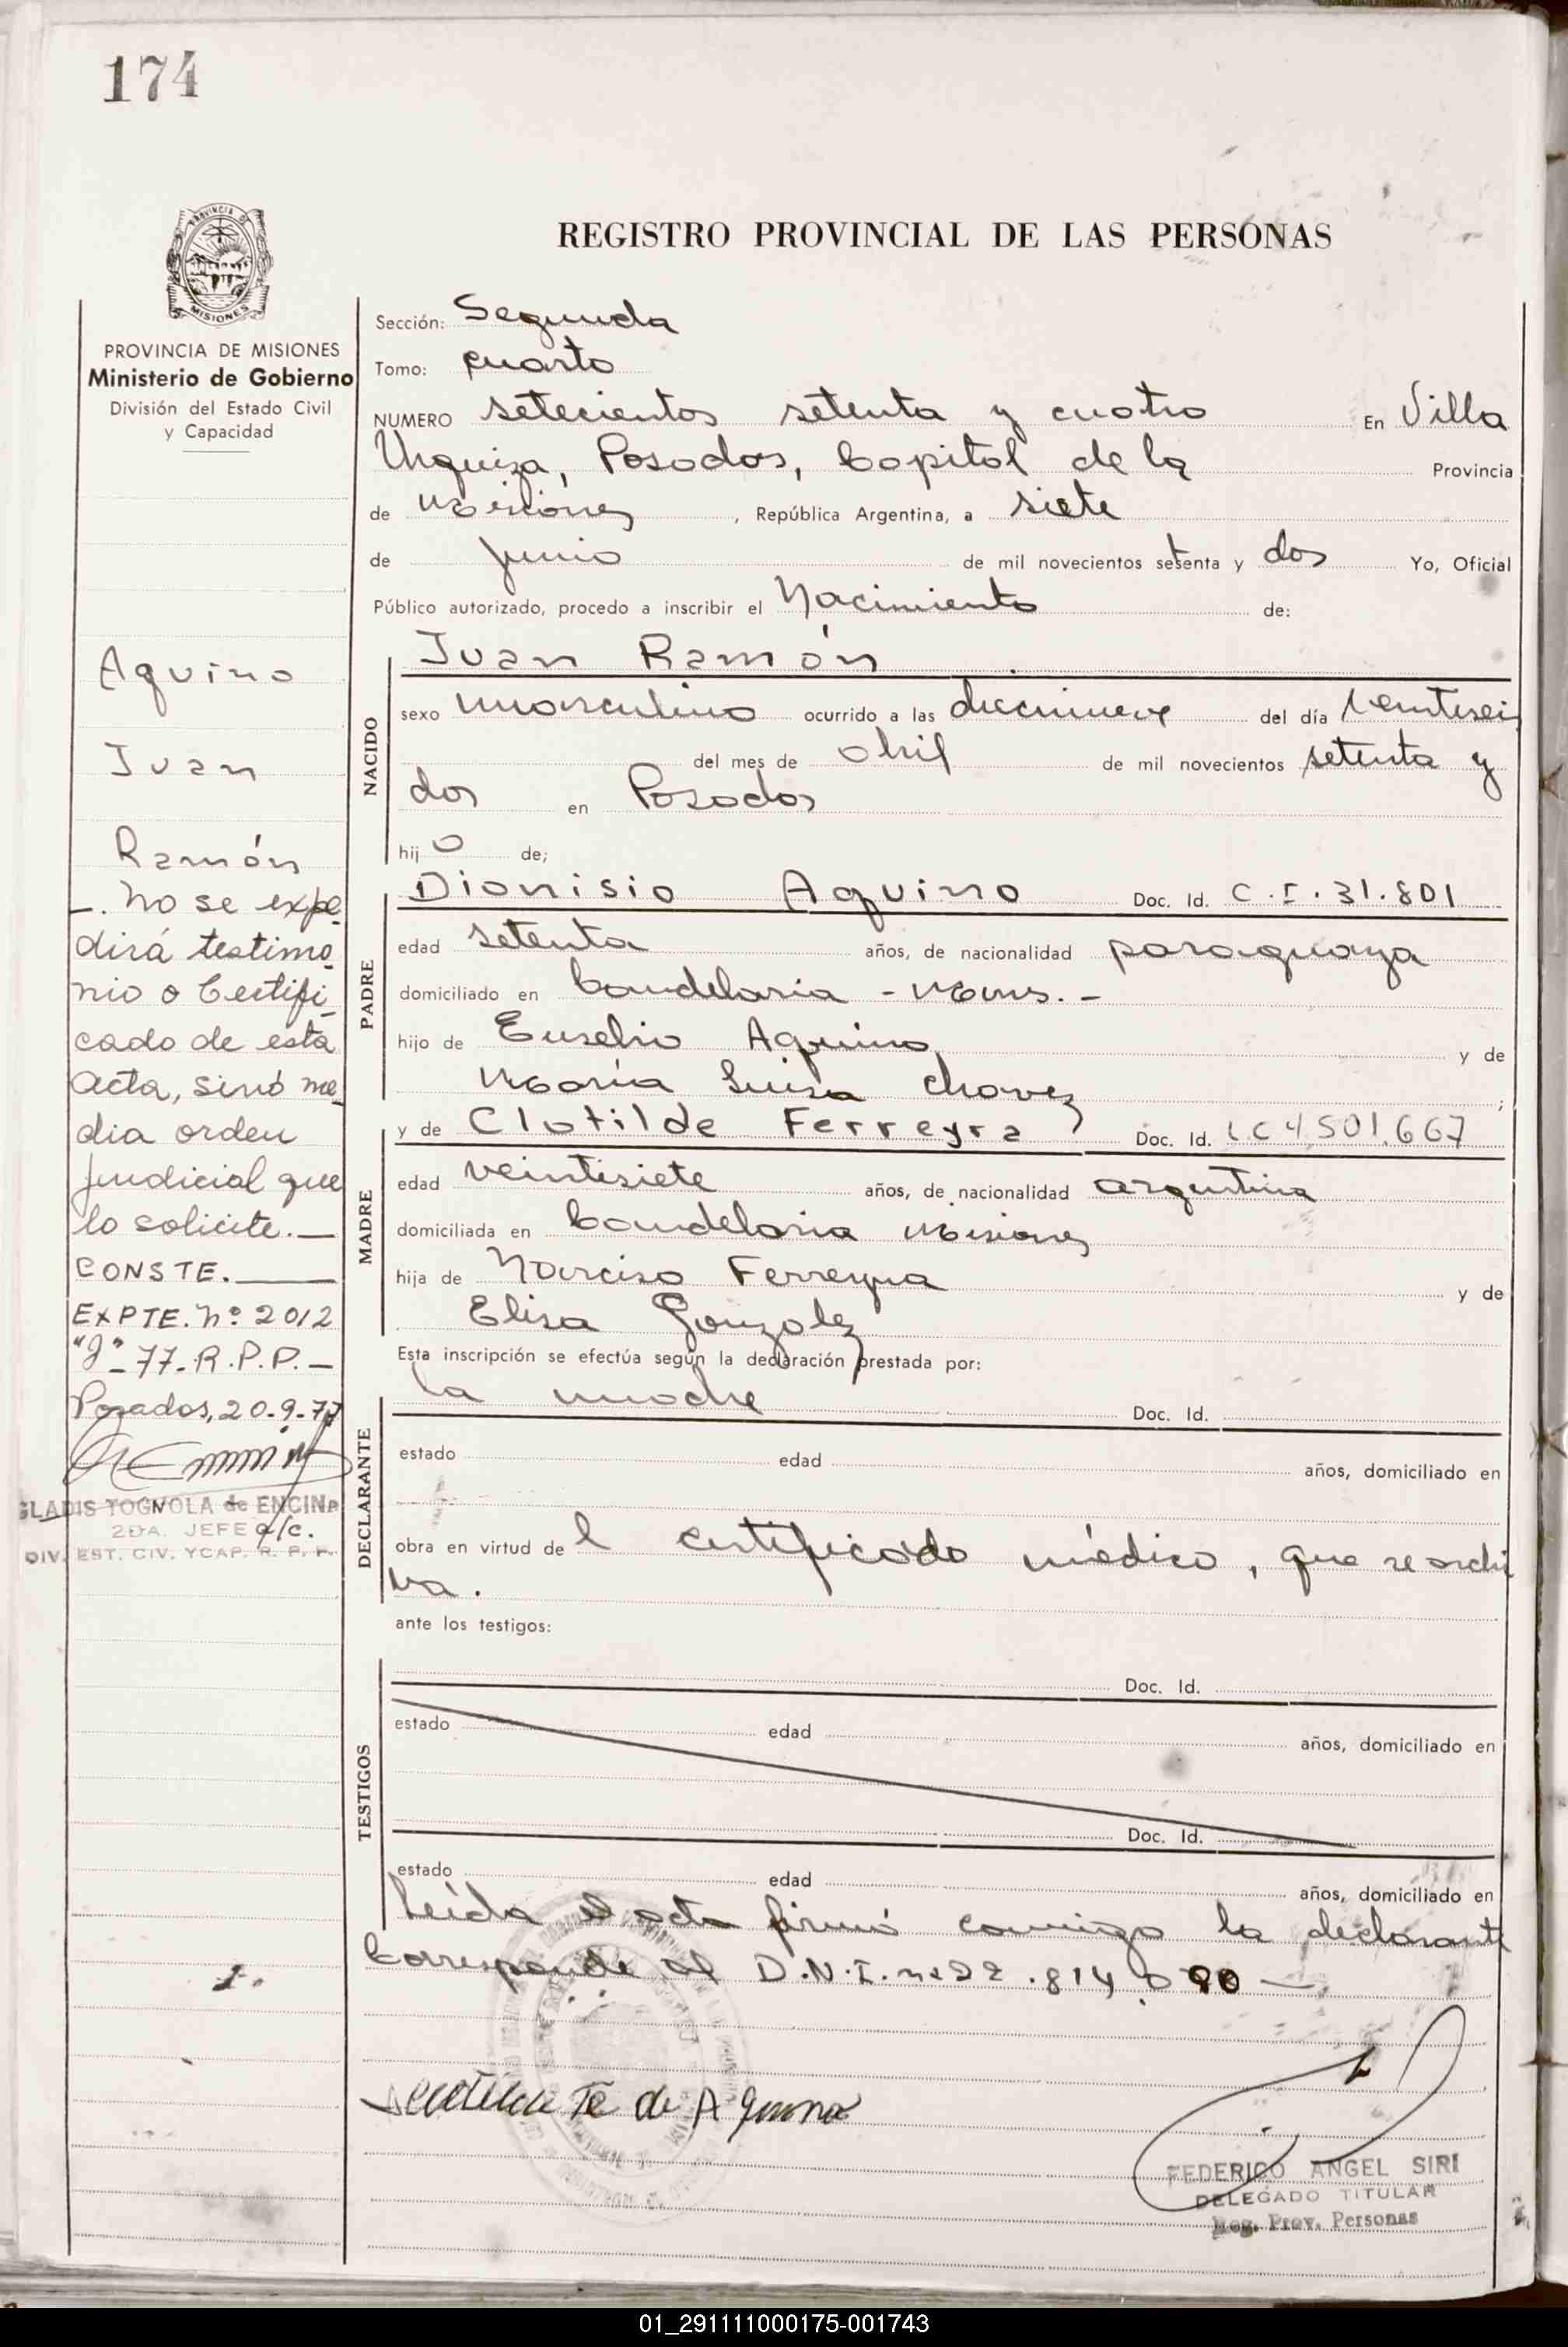 174
REGISTRO PROVINCIAL DE LAS PERSONAS
PROVINCIA DE
MISIONES
PROVINCIA DE MISIONES
Ministerio de Gobierno
División del Estado Civil
y Capacidad
Aquino
Juan
Ramón
_. no se expe
dirá testimo
nio o Certifi
cado de esta
acta, sinó me
dia orden
judicial que
lo solicite._
CONSTE.____
EXPTE. Nº 2012
"J"-77-R.P.P.-
Posadas, 20-9-77
GLADIS TOGNOLA de ENCINA
2DA. JEFE a/c.
DIV. EST. CIV. YCAP. R. P. P.
Sección: Segunda
Tomo: cuarto
NUMERO setecientos setenta y cuatro En Villa
Urquiza, Posadas, Capital de la Provincia
de Misiones, República Argentina, a siete
de junio de mil novecientos setenta y dos Yo, Oficial
Público autorizado, procedo a inscribir el Nacimiento de:
NACIDO
Juan Ramón
sexo masculino ocurrido a las diecinueve del día veintiseis
del mes de abril de mil novecientos setenta y
dos en Posadas
hijo de;
PADRE
Dionisio Aquino Doc. Id. C.I. 31.801
edad setenta años, de nacionalidad paraguaya
domiciliado en Candelaria - Mnes. -
hijo de Eusebio Aquino y de
María Luisa Chavez ;
MADRE
y de Clotilde Ferreyra Doc. Id. LC 4.501.667
edad veintisiete años, de nacionalidad argentina
domiciliada en Candelaria Misiones
hija de Narciso Ferreyra y de
Elisa Gonzalez
Esta inscripción se efectúa según la declaración prestada por:
DECLARANTE
la madre Doc. Id.
estado edad años, domiciliado en
obra en virtud del certificado médico, que se archi
va.
ante los testigos:
TESTIGOS
Doc. Id.
estado edad años, domiciliado en
Doc. Id.
estado edad años, domiciliado en
Leída el acta firmó conmigo la declarante
Corresponde al D.N.I. nº 22.814.090 —
de Aquino
FEDERICO ANGEL SIRI
DELEGADO TITULAR
Reg. Prov. Personas
01_291111000175-001743